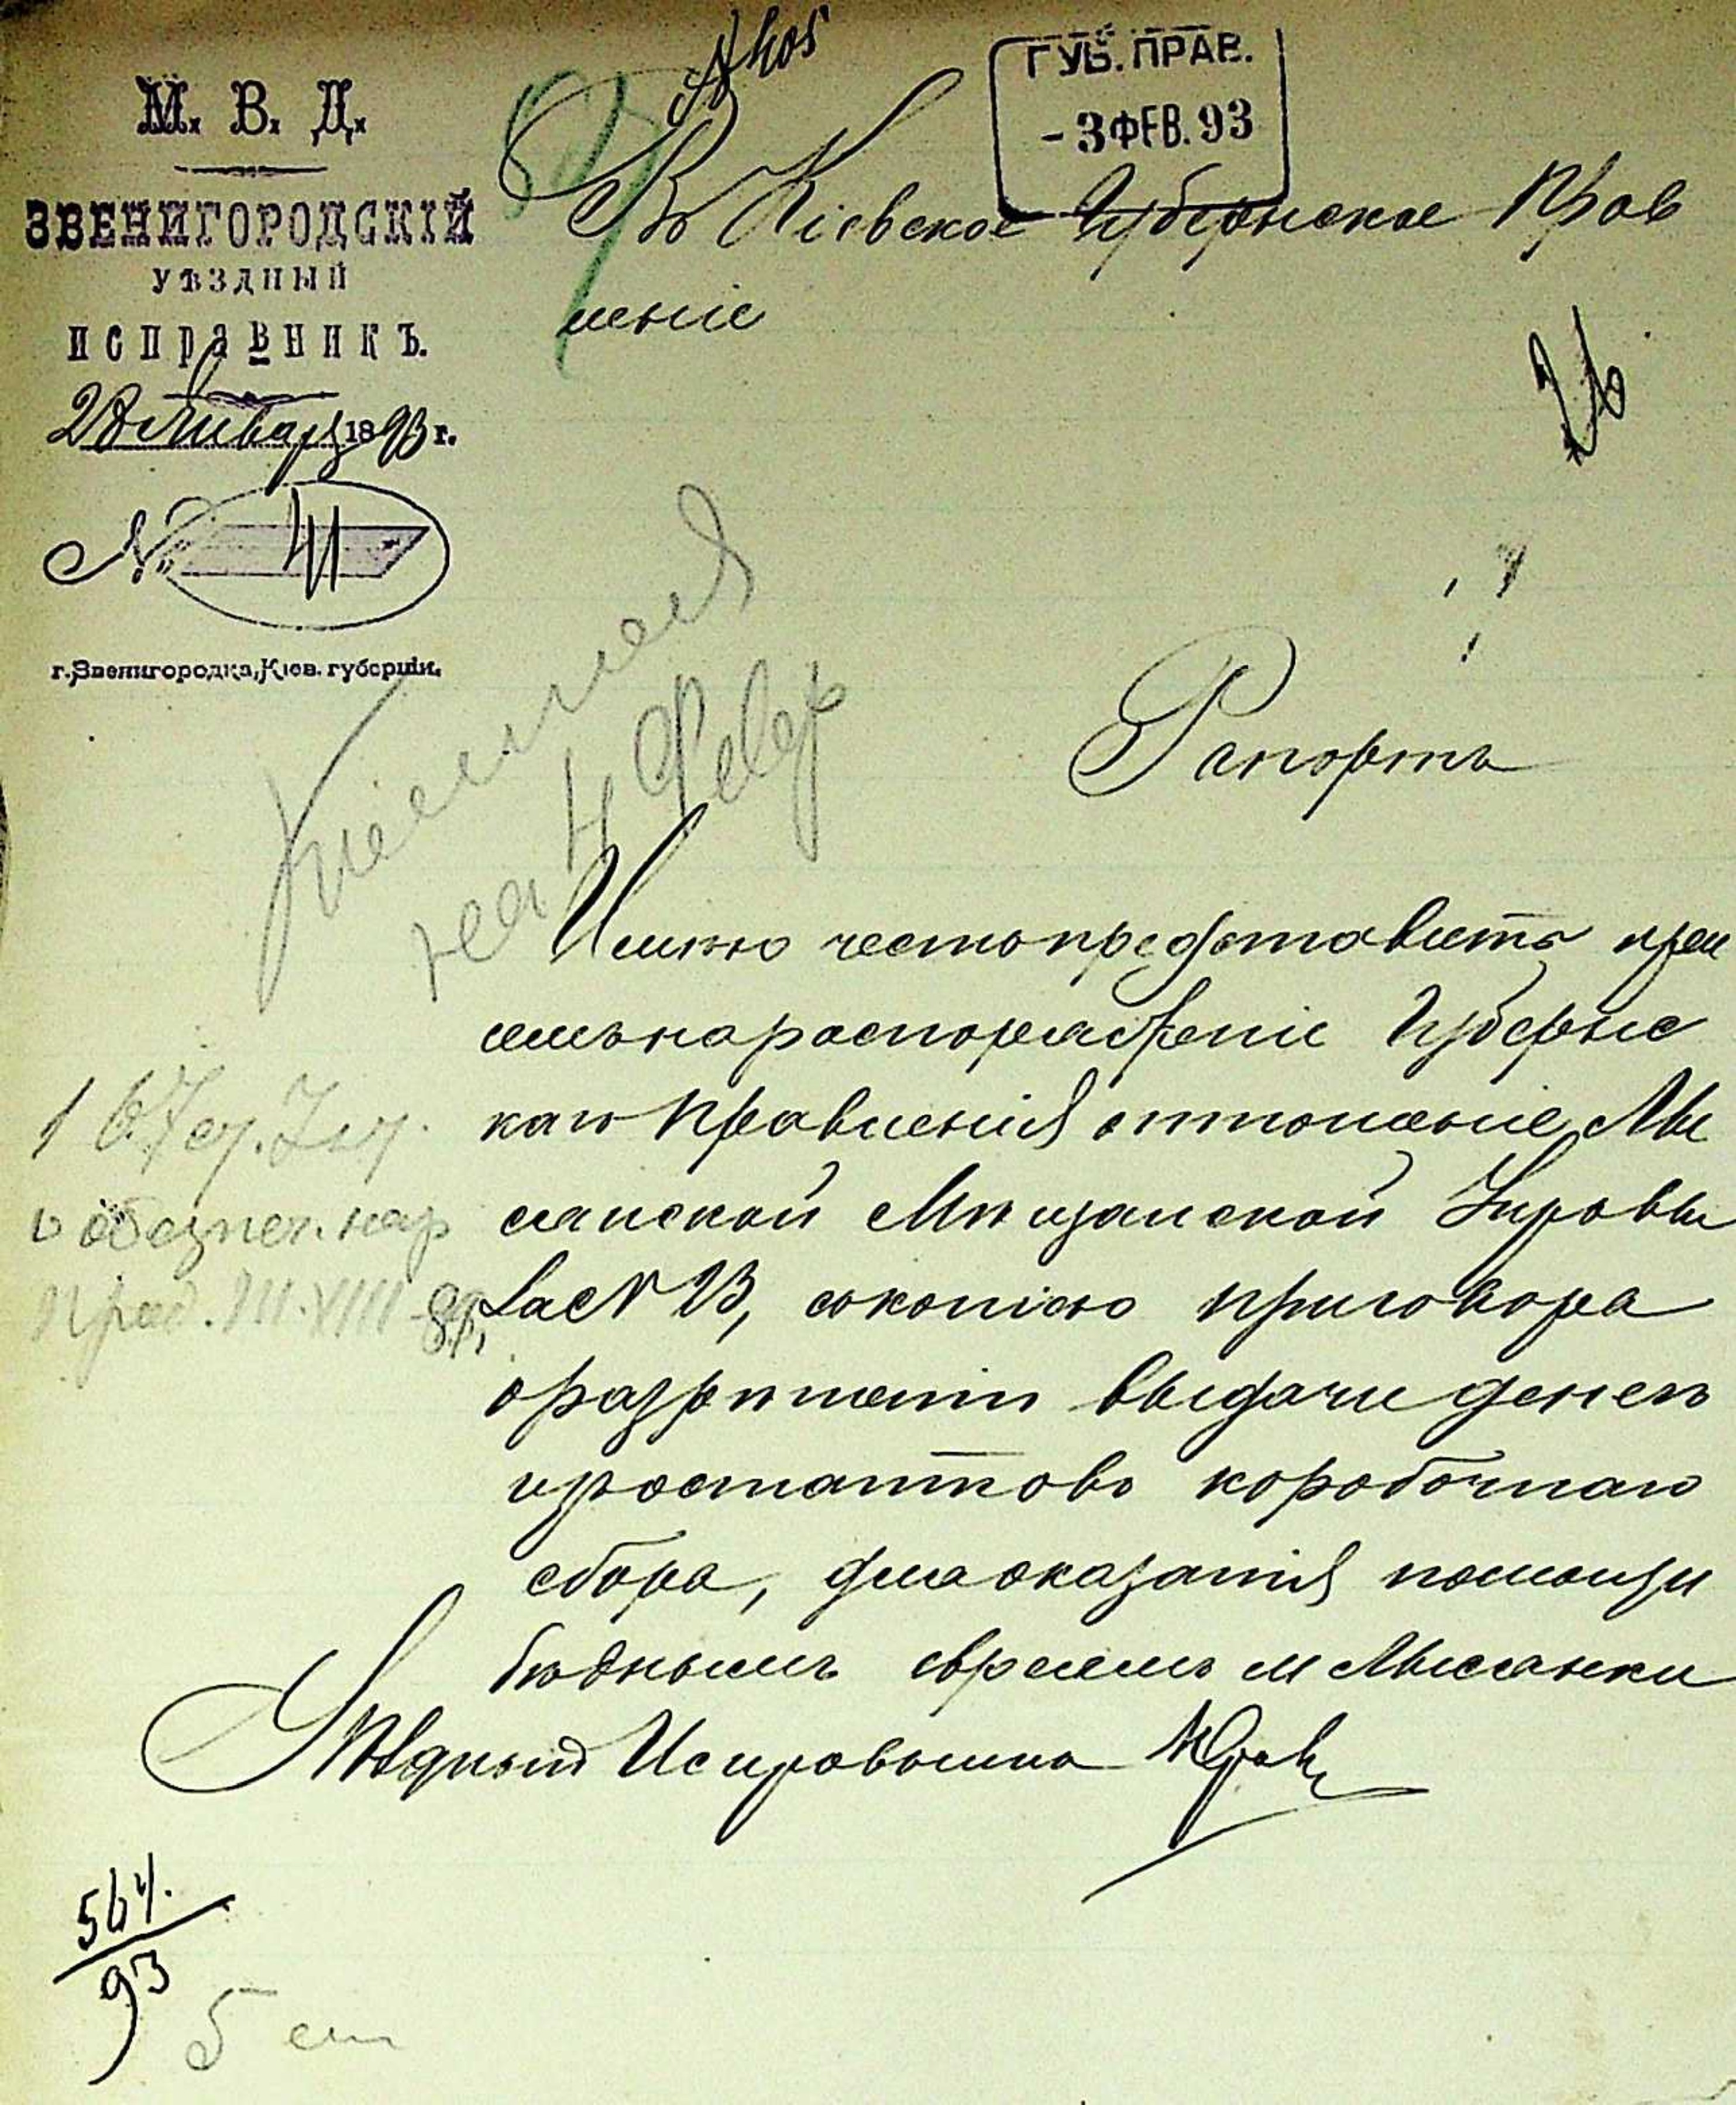 М. В. Д.
ЗВЕНИГОРОДСКІЙ
УѢЗДНЫЙ
ИСПРАВНИКЪ.
28 Января 1893 г.
№ 41
г. Звенигородка, Кіев. губерніи.
ГУБ. ПРАВ.
- 3 ФЕВ. 93
Въ Кіевское Губернское Прав
леніе
Рапортъ
на 4 Февр
Имѣю честь представить при
семъ на распоряженіе Губернс
каго Правленія отношеніе Лы
сянской Мѣщанской Управы
за № 13, съ копіею приговора
о разрѣшеніи выдачи денегъ
изъ остатковъ коробочнаго
сбора, для оказанія помощи
бѣднымъ евреямъ м Лысянки
Уѣздный Исправникъ
1
о обезпеч. нар
Прод. III. VIII
564.
93
5 ст